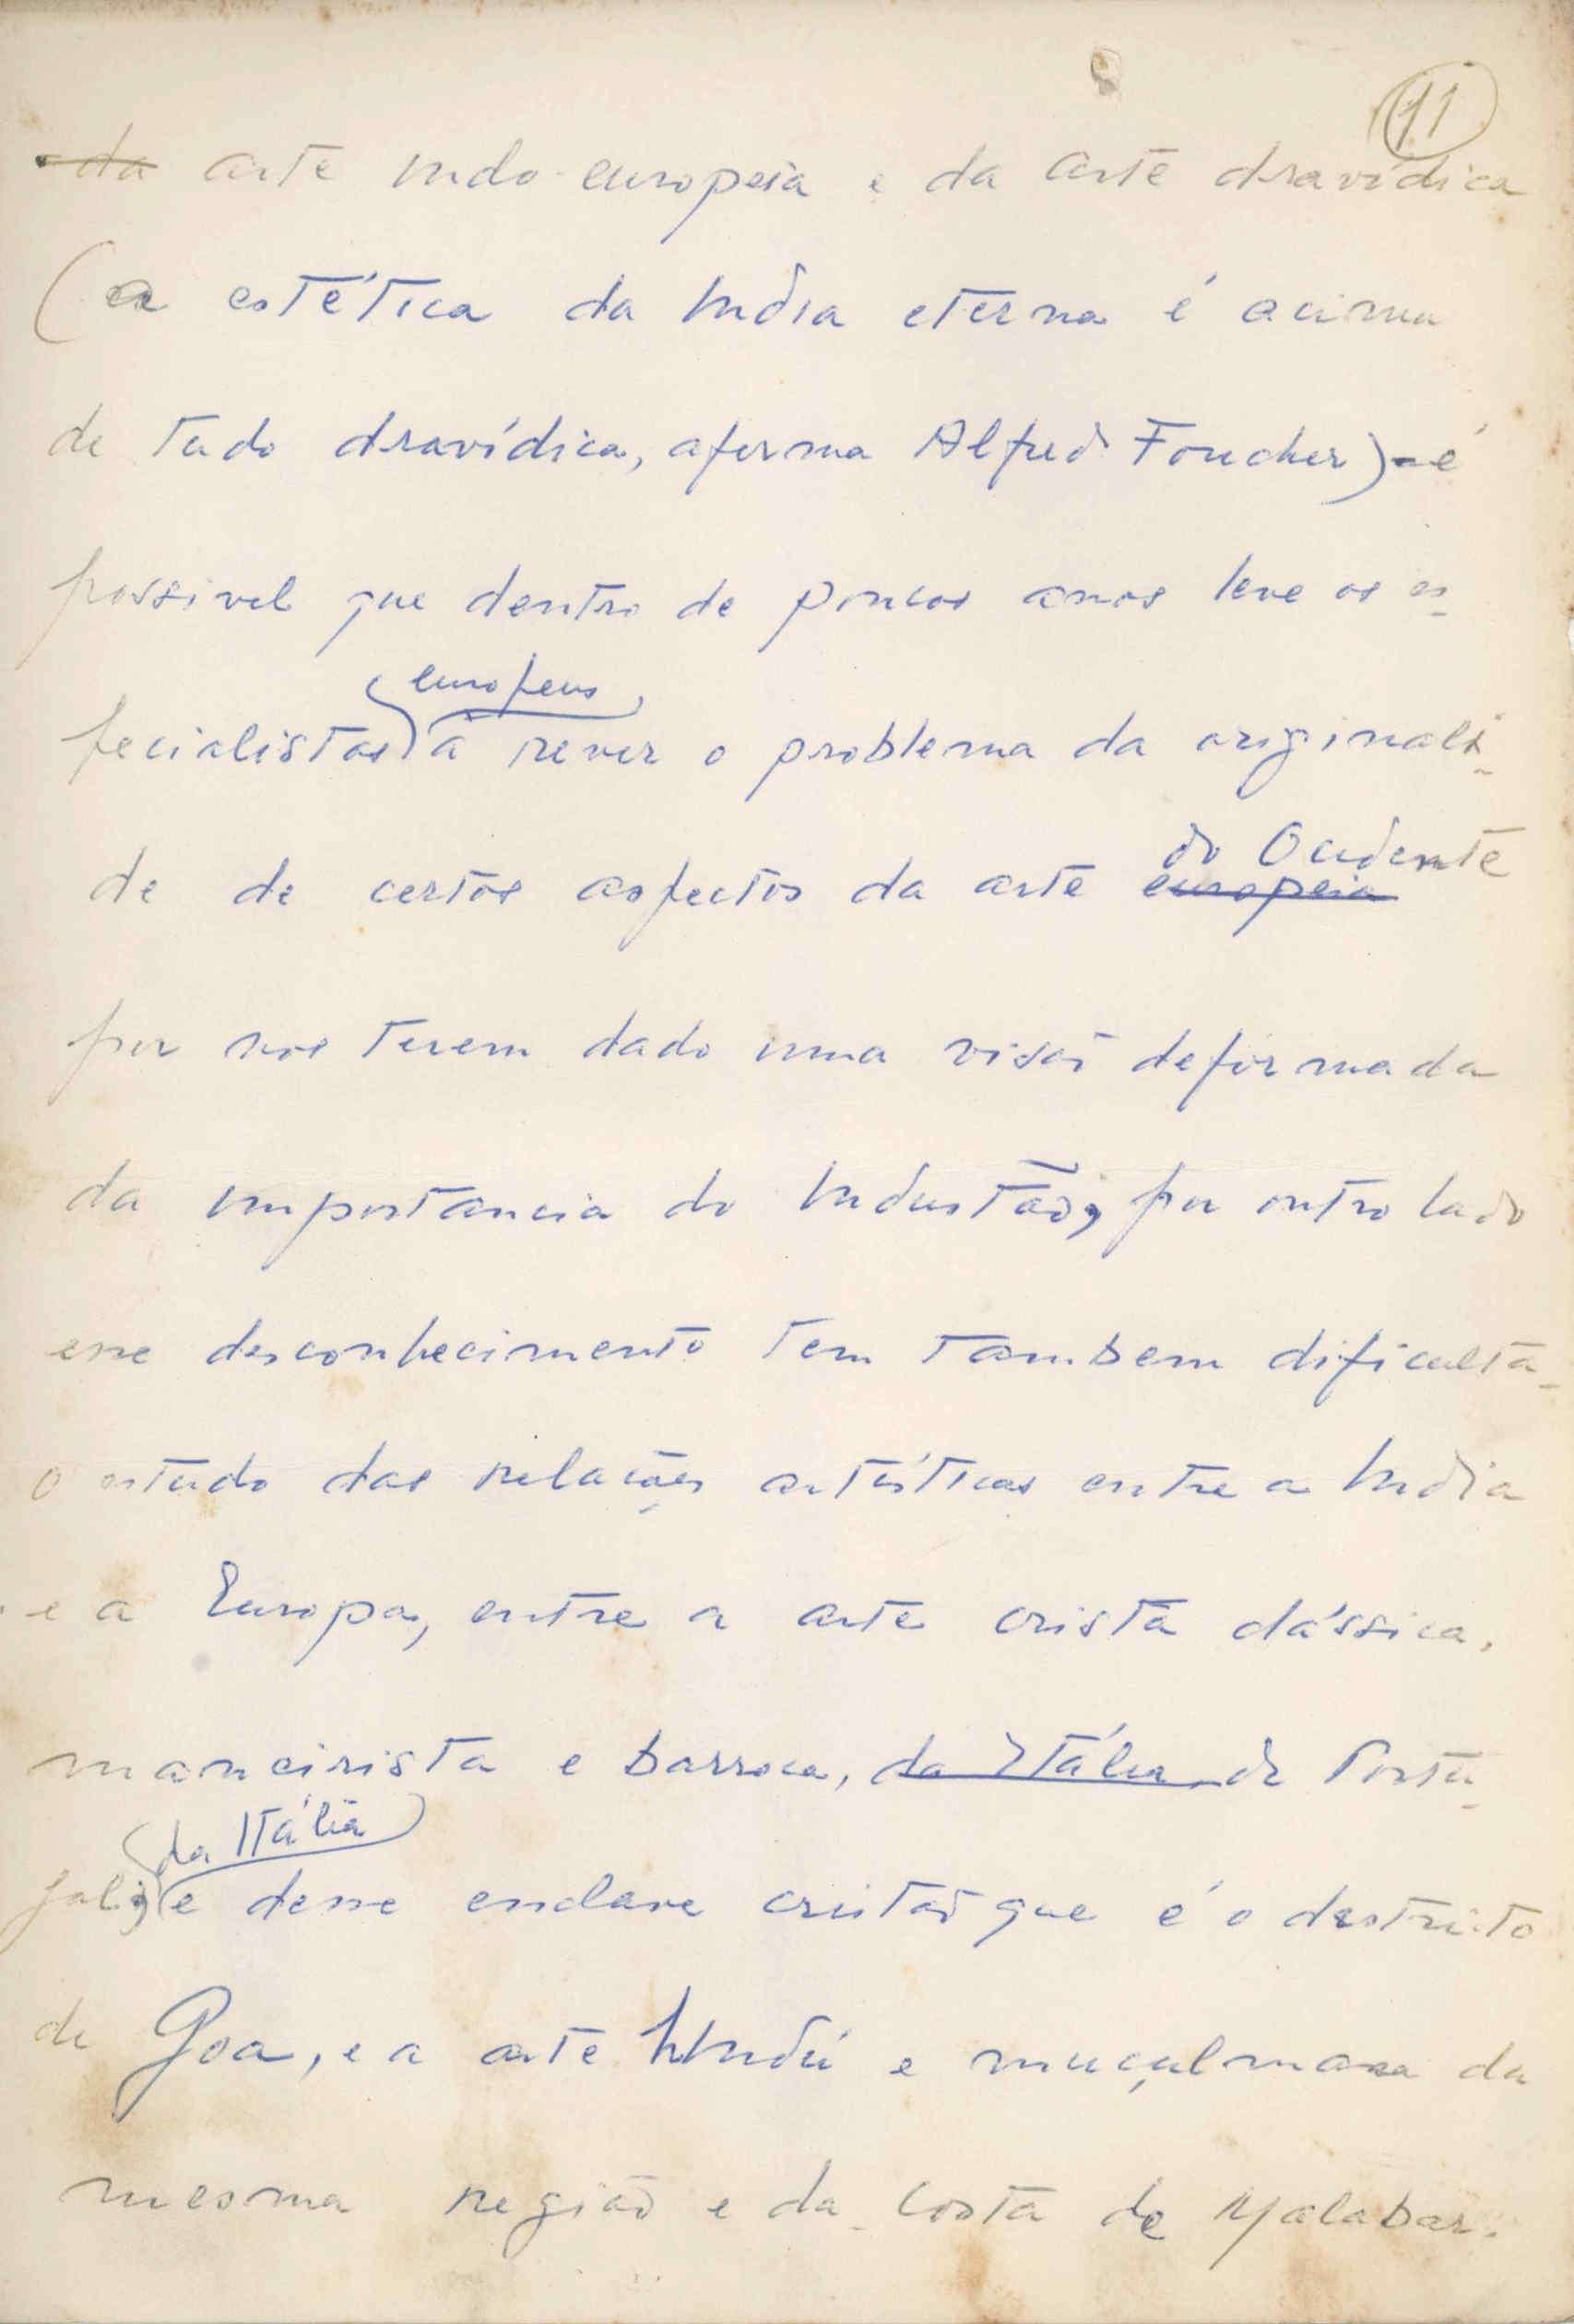 11
da arte indo-europeia e da arte dravídica
(a estética da India eterna é acima
de tudo dravídica, aferma Alfred Foucher) - é
possivel que dentro de poucos anos leve os es-
europeus
pecialistas a rever o problema da originali-
do Ocidente
de de certos aspectos da arte europeia
por nos terem dado uma visão deformada
da importancia do Industão, por outro lado
esse desconhecimento tem tambem dificulta-
o estudo das relações artísticas entre a India
e a Europa, entre a arte cristã clássica,
maneirista e barroca, da Itália de Portu-
da Itália
gal, e desse enclave cristão que é o destrito
de Goa, e a arte hindú e muçulmana da
mesma região e da costa de Malabar.